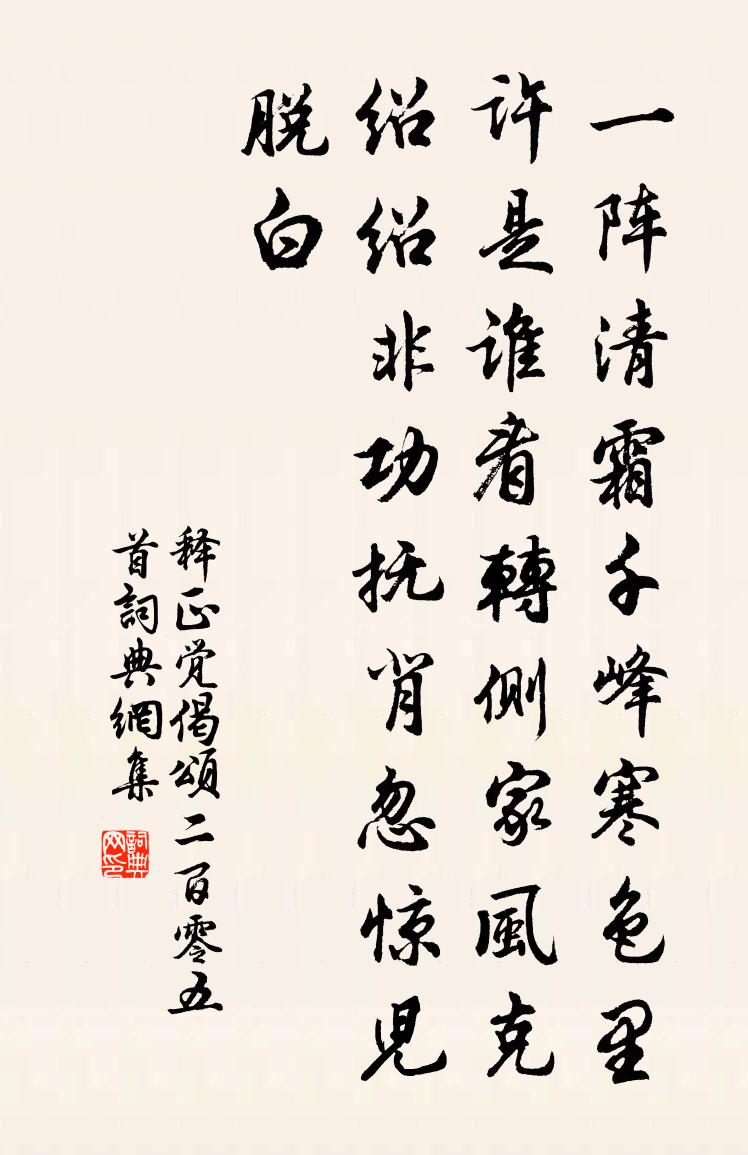 一阵清霜千峰寒色里
许是谁看轉侧家風克
绍绍非功抚背忽惊児
脱白
释正觉偈頌二百零五
首詞典網集
詞典
网印